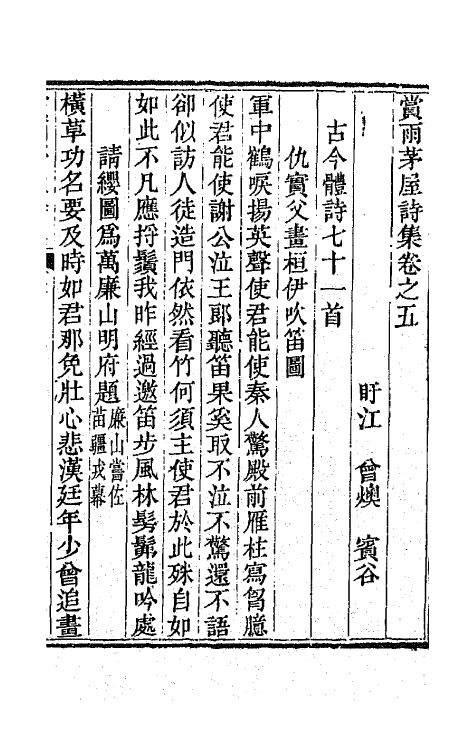 賞雨茅屋詩集卷之五
盱江　曾燠　賓谷
古今體詩七十一首
仇實父畫桓伊吹笛圖
軍中鶴唳揚英聲使君能使秦人驚殿前雁柱寫胷臆
使君能使謝公泣王郞聽笛果奚取不泣不驚還不語
卻似訪人徒造門依然看竹何須主使君於此殊自如
如此不凡應捋鬚我昨經過邀笛步風林髣髴龍吟處
請纓圖爲萬廉山明府題廉山嘗佐苗疆戎幕
橫草功名要及時如君那免壯心悲漢廷年少曾追畫